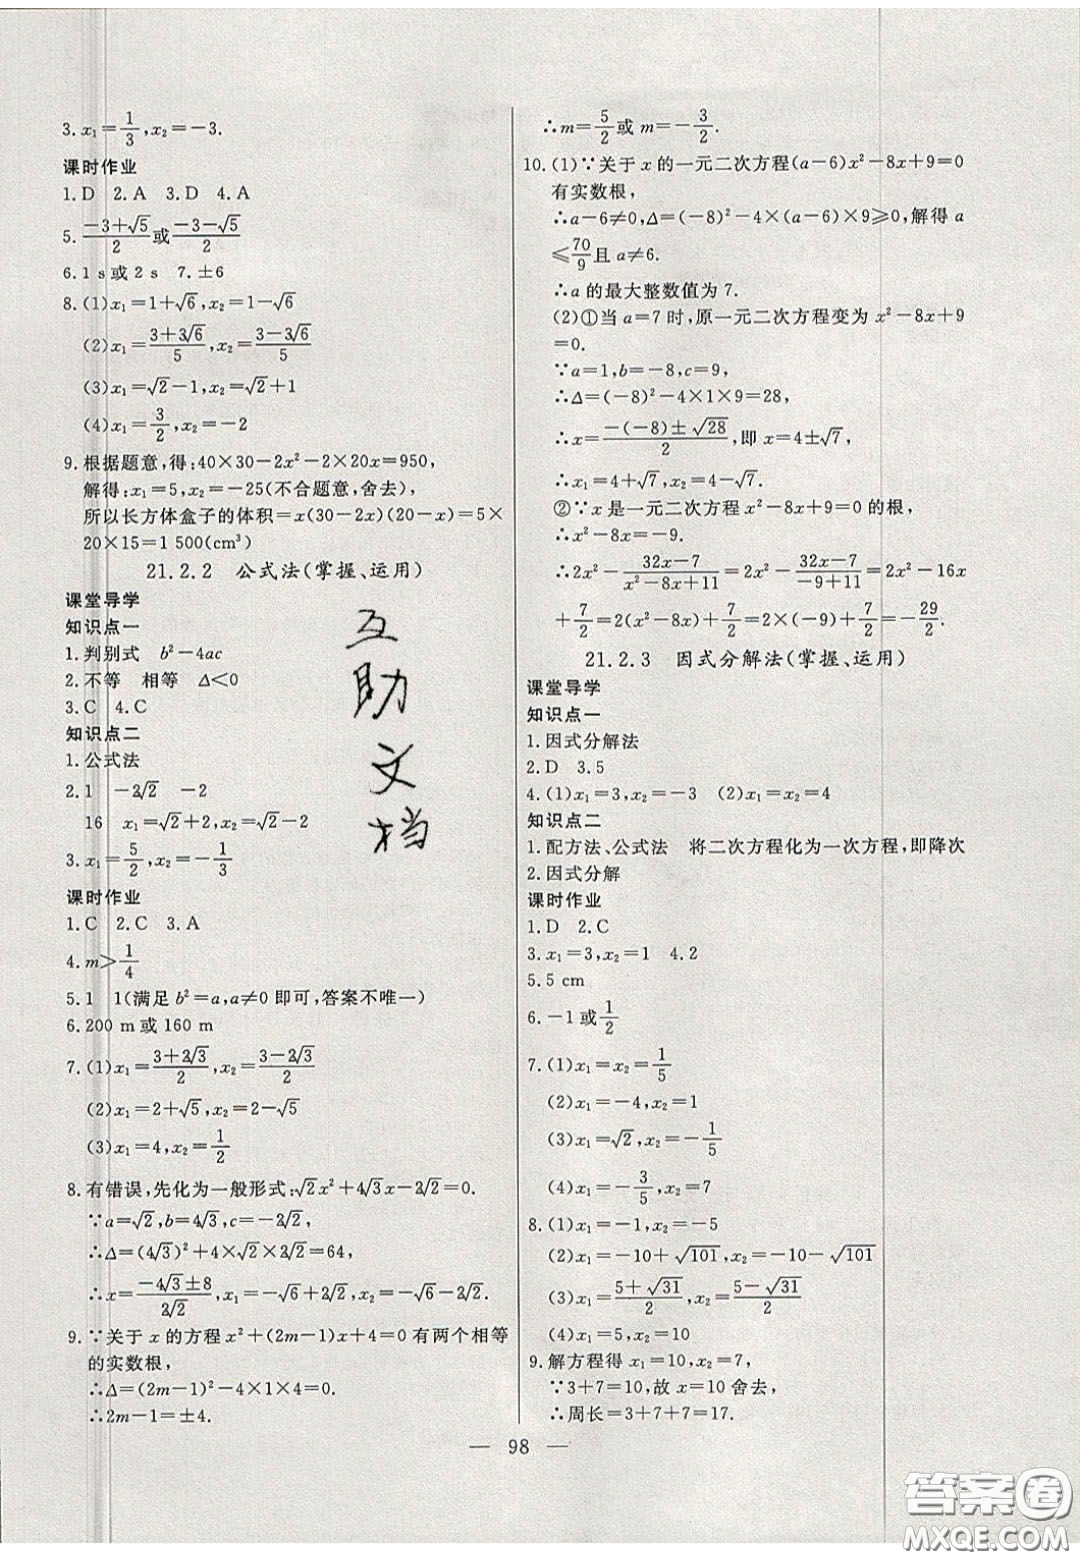 3. x₁=1/3, x₂=-3.
课时作业
1. D 2. A 3. D 4. A
5. (-3+√5)/2或(-3-√5)/2
6. 1 s或2 s 7. ±6
8. (1)x₁=1+√6, x₂=1-√6
(2)x₁=(3+3√6)/5, x₂=(3-3√6)/5
(3)x₁=√2-1, x₂=√2+1
(4)x₁=3/2, x₂=-2
9. 根据题意,得:40×30-2x²-2×20x=950,
解得:x₁=5, x₂=-25(不合题意,舍去),
所以长方体盒子的体积=x(30-2x)(20-x)=5×
20×15=1 500(cm³)
21.2.2 公式法(掌握、运用)
课堂导学
知识点一
1. 判别式 b²-4ac
2. 不等 相等 Δ<0
3. C 4. C
知识点二
1. 公式法
2. 1 -2√2 -2
16 x₁=√2+2, x₂=√2-2
3. x₁=5/2, x₂=-1/3
课时作业
1. C 2. C 3. A
4. m>1/4
5. 1 1(满足b²=a,a≠0即可,答案不唯一)
6. 200 m或160 m
7. (1)x₁=(3+2√3)/2, x₂=(3-2√3)/2
(2)x₁=2+√5, x₂=2-√5
(3)x₁=4, x₂=1/2
8. 有错误,先化为一般形式:√2x²+4√3x-2√2=0.
∵a=√2, b=4√3, c=-2√2,
∴Δ=(4√3)²+4×√2×2√2=64,
∴x=(-4√3±8)/(2√2), x₁=-√6+2√2, x₂=-√6-2√2.
9. ∵关于x的方程x²+(2m-1)x+4=0有两个相等
的实数根,
∴Δ=(2m-1)²-4×1×4=0,
∴2m-1=±4.
互
助
文
档
∴m=5/2或m=-3/2.
10. (1)∵关于x的一元二次方程(a-6)x²-8x+9=0
有实数根,
∴a-6≠0,Δ=(-8)²-4×(a-6)×9≥0,解得a
≤70/9且a≠6.
∴a的最大整数值为7.
(2)①当a=7时,原一元二次方程变为x²-8x+9
=0.
∵a=1, b=-8, c=9,
∴Δ=(-8)²-4×1×9=28,
∴x=(-(-8)±√28)/2,即x=4±√7,
∴x₁=4+√7, x₂=4-√7.
②∵x是一元二次方程x²-8x+9=0的根,
∴x²-8x=-9.
∴2x²-(32x-7)/(x²-8x+11)=2x²-(32x-7)/(-9+11)=2x²-16x
+7/2=2(x²-8x)+7/2=2×(-9)+7/2=-29/2.
21.2.3 因式分解法(掌握、运用)
课堂导学
知识点一
1. 因式分解法
2. D 3. 5
4. (1)x₁=3, x₂=-3 (2)x₁=x₂=4
知识点二
1. 配方法、公式法 将二次方程化为一次方程,即降次
2. 因式分解
课时作业
1. D 2. C
3. x₁=3, x₂=1 4. 2
5. 5 cm
6. -1或1/2
7. (1)x₁=x₂=1/5
(2)x₁=-4, x₂=1
(3)x₁=√2, x₂=-1/5
(4)x₁=-3/5, x₂=7
8. (1)x₁=-1, x₂=-5
(2)x₁=-10+√101, x₂=-10-√101
(3)x₁=(5+√31)/2, x₂=(5-√31)/2
(4)x₁=5, x₂=10
9. 解方程得x₁=10, x₂=7,
∵3+7=10,故x=10舍去,
∴周长=3+7+7=17.
— 98 —
答案圈
MXQE.COM